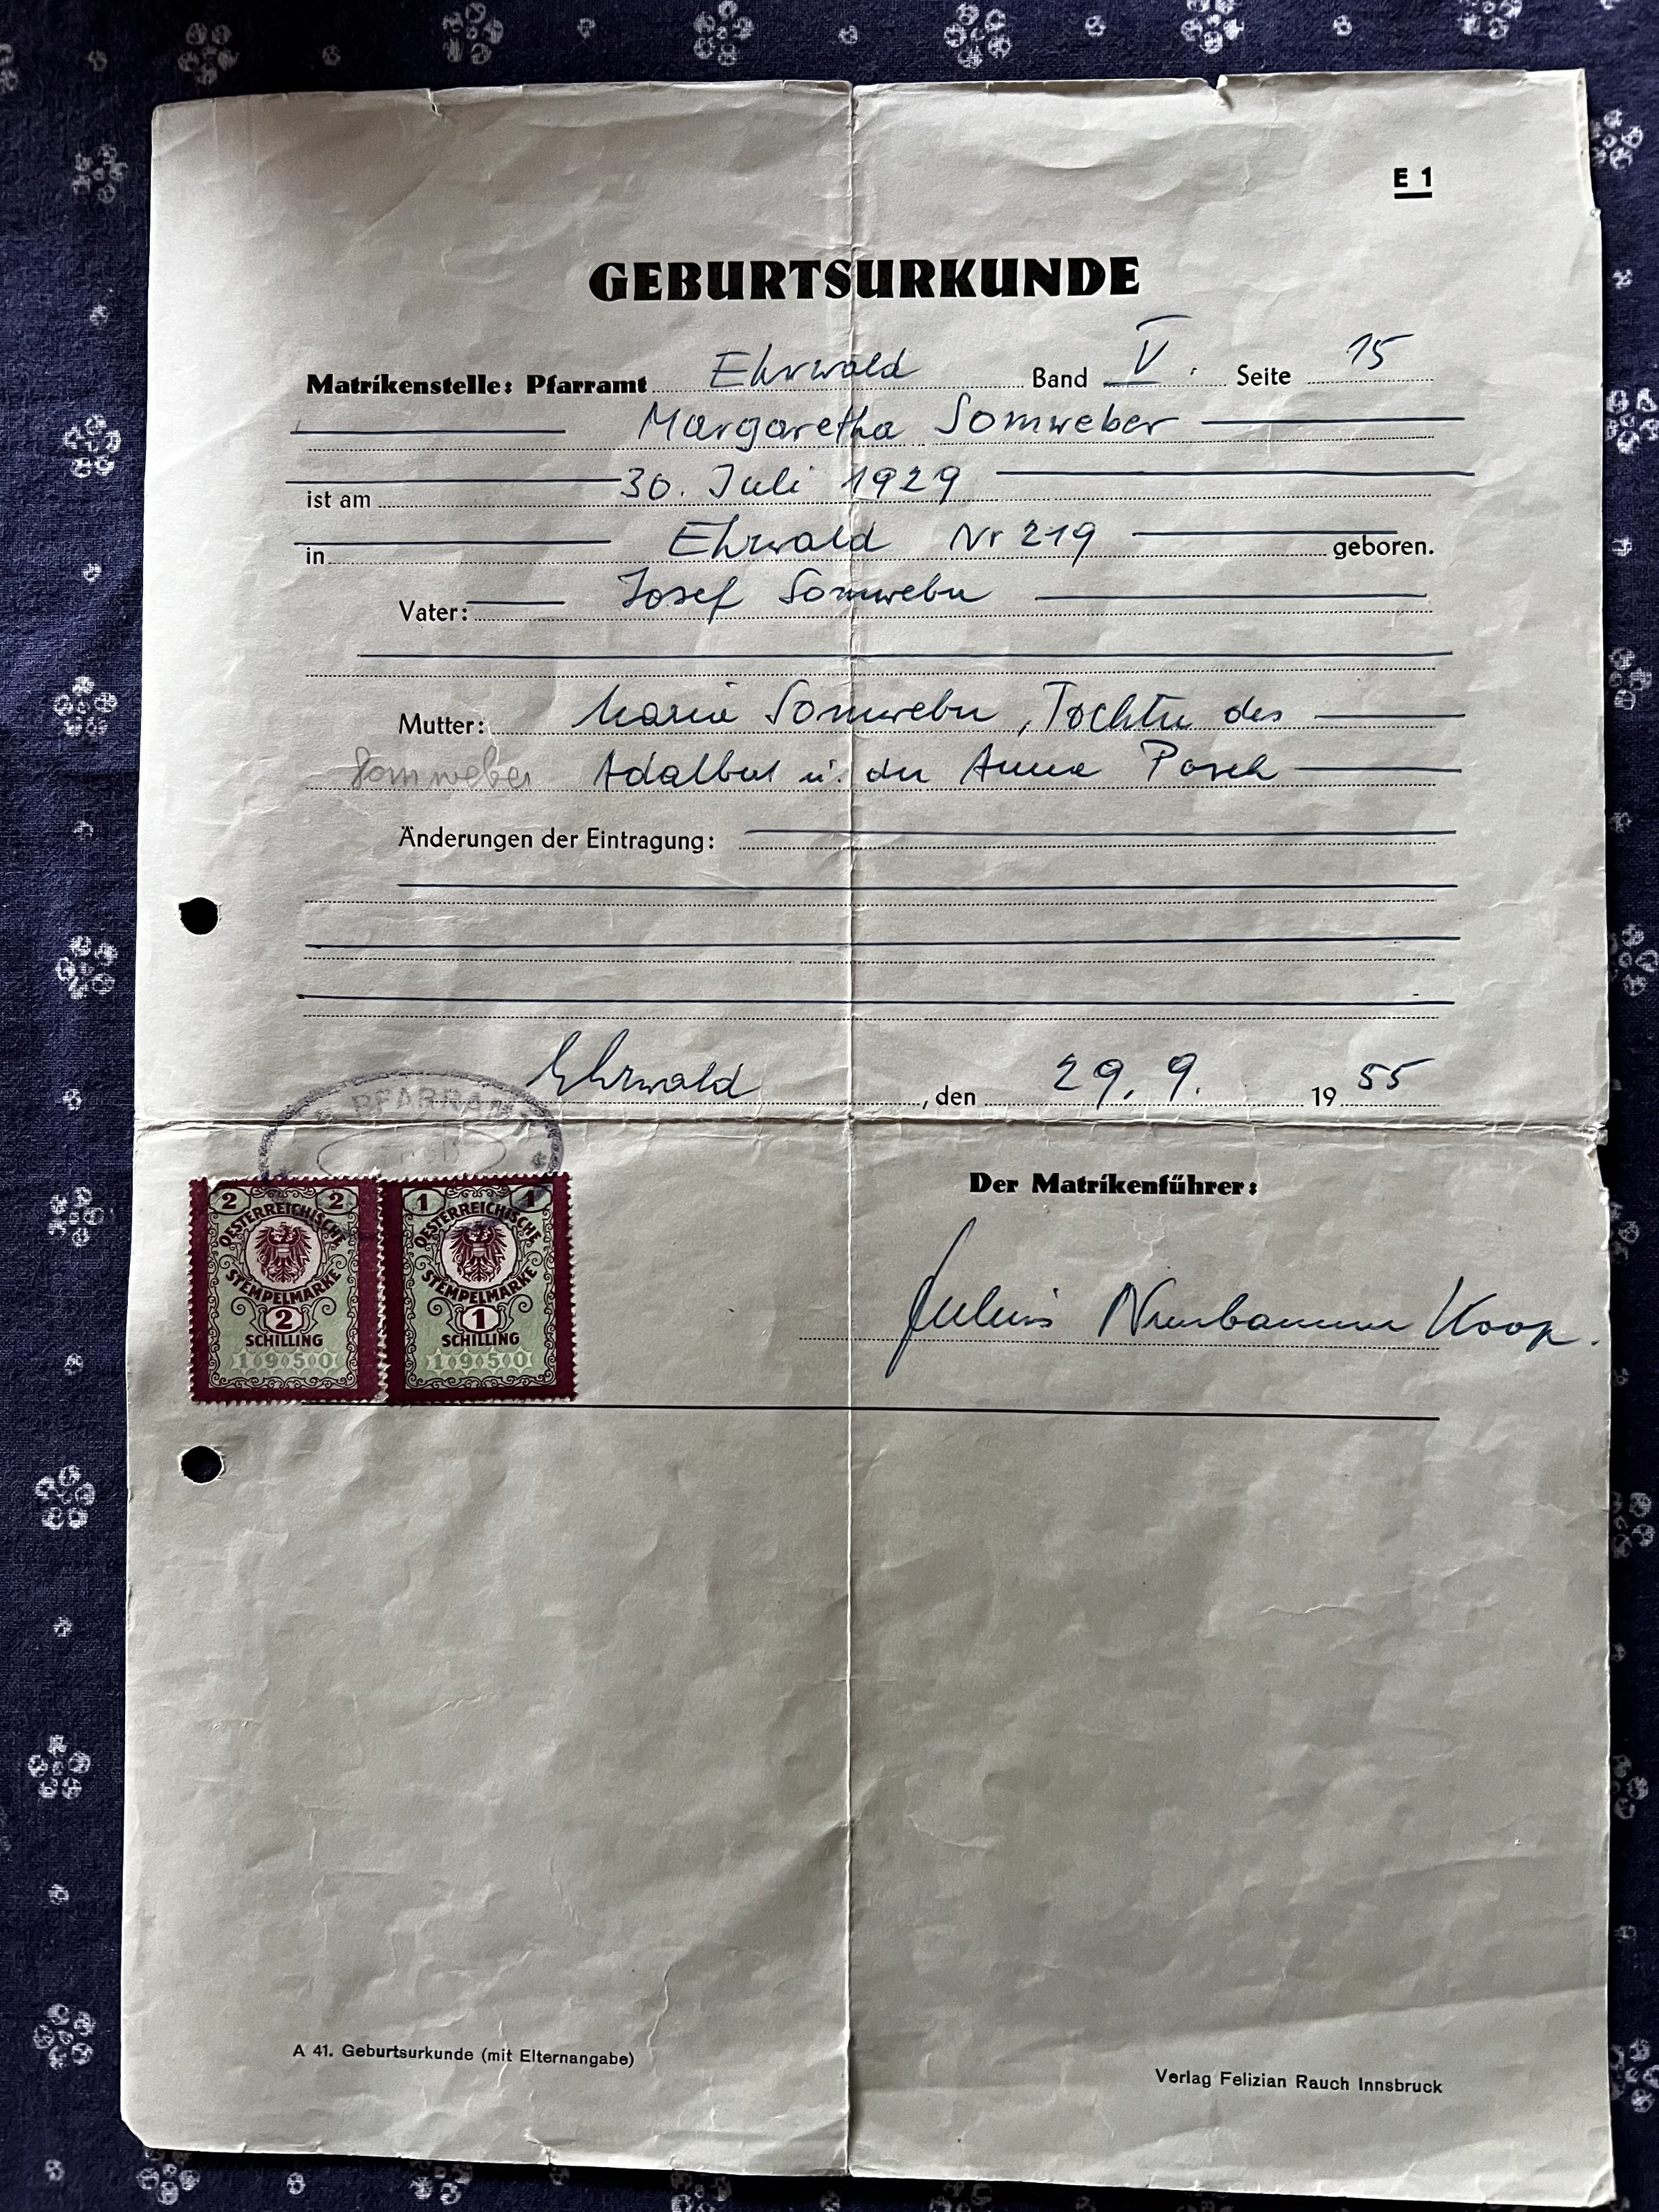 E 1
GEBURTSURKUNDE
Matrikenstelle: Pfarramt Ehrwald Band V. Seite 15
Margaretha Somweber
ist am 30. Juli 1929
in Ehrwald Nr 219 geboren.
Vater: Josef Somweber
Mutter: Maria Somweber, Tochter des
Somweber Adalbert u. der Anna Posch
Änderungen der Eintragung:
Ehrwald, den 29. 9. 1955
PFARRAMT
Der Matrikenführer:
2 2
OESTERREICHISCHE
STEMPELMARKE
2
SCHILLING
1950
1 1
OESTERREICHISCHE
STEMPELMARKE
1
SCHILLING
1950
Julius Koop.
A 41. Geburtsurkunde (mit Elternangabe)
Verlag Felizian Rauch Innsbruck